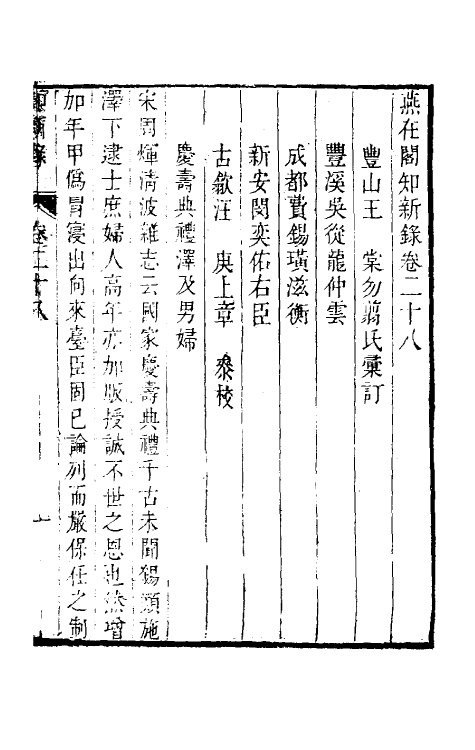 燕在閣知新錄卷二十八
豐山王　棠勿翦氏彙訂
豐溪吳從龍仲雲
成都費錫璜滋衡
新安閔奕佑右臣
古歙汪　庚上章　叅校
慶壽典禮澤及男婦
宋周煇清波雜志云國家慶壽典禮千古未聞錫類施
澤下逮士庶婦人高年亦加版授誠不世之恩也然增
加年甲僞冒寖出向來臺臣固已論列而嚴保任之制
知新錄　卷二十八　一